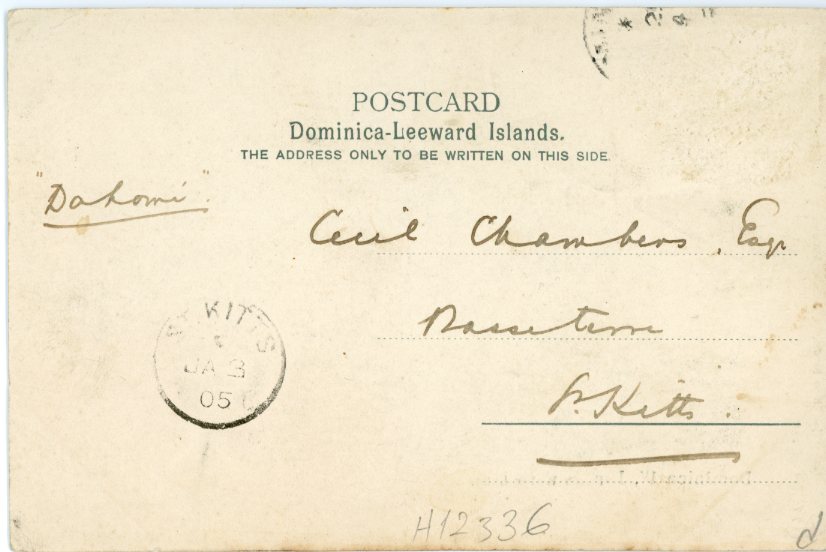 POSTCARD
Dominica-Leeward Islands.
THE ADDRESS ONLY TO BE WRITTEN ON THIS SIDE.
"Dahomi"
Cecil Chambers, Esqr
Basseterre
St. Kitts.
ST. KITTS
JA 3
05
H12336
d